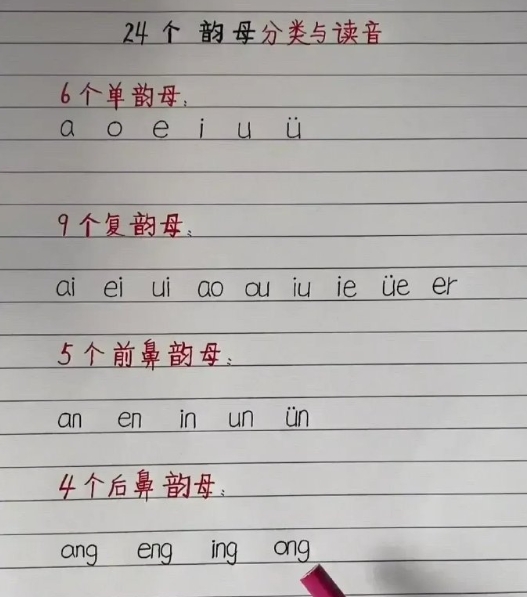 24个韵母分类与读音
6个单韵母:
a o e i u ü
9个复韵母:
ai ei ui ao ou iu ie üe er
5个前鼻韵母:
an en in un ün
4个后鼻韵母:
ang eng ing ong